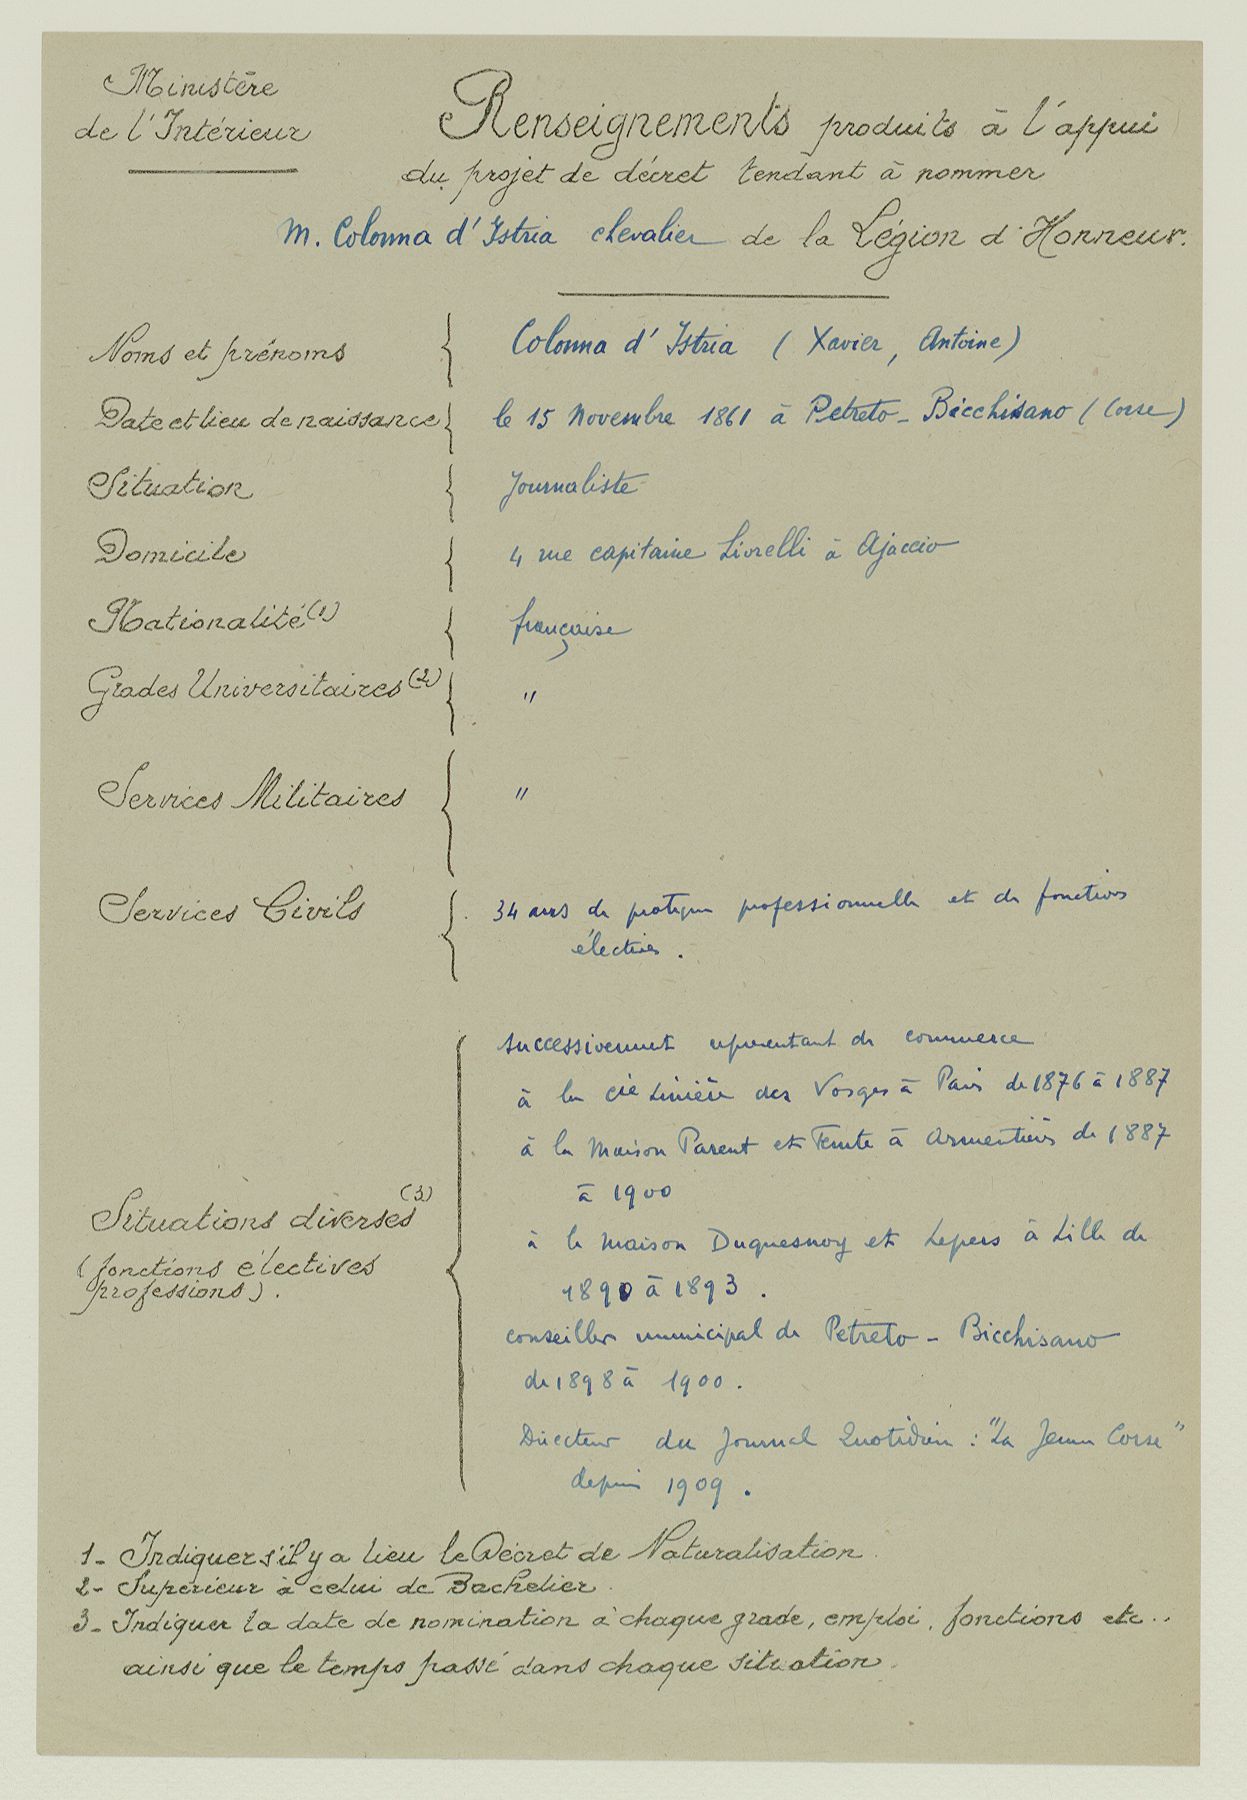 Ministère
de l'Intérieur
Renseignements produits à l'appui
du projet de décret tendant à nommer
M. Colonna d'Istria chevalier de la Légion d'Honneur.
Noms et prénoms { Colonna d'Istria (Xavier, Antoine)
Date et lieu de naissance { le 15 Novembre 1861 à Petreto-Bicchisano (Corse)
Situation { Journaliste
Domicile { 4 rue capitaine Livrelli à Ajaccio
Nationalité (1) { française
Grades Universitaires (2) { "
Services Militaires { "
Services Civils { 34 ans de pratique professionnelle et de fonctions
électives.
Situations diverses (3)
(fonctions électives
professions).
successivement représentant de commerce
à la Cie Linière des Vosges à Paris de 1876 à 1887
à la Maison Parent et à Armentières de 1887
à 1900
à la Maison Duquesnoy et Lepers à Lille de
1890 à 1893.
conseiller municipal de Petreto-Bicchisano
de 1898 à 1900.
Directeur du Journal Quotidien : "La Jeune Corse"
depuis 1909.
1- Indiquer s'il y a lieu le Décret de Naturalisation.
2- Supérieur à celui de Bachelier.
3- Indiquer la date de nomination à chaque grade, emploi, fonctions etc..
ainsi que le temps passé dans chaque situation.